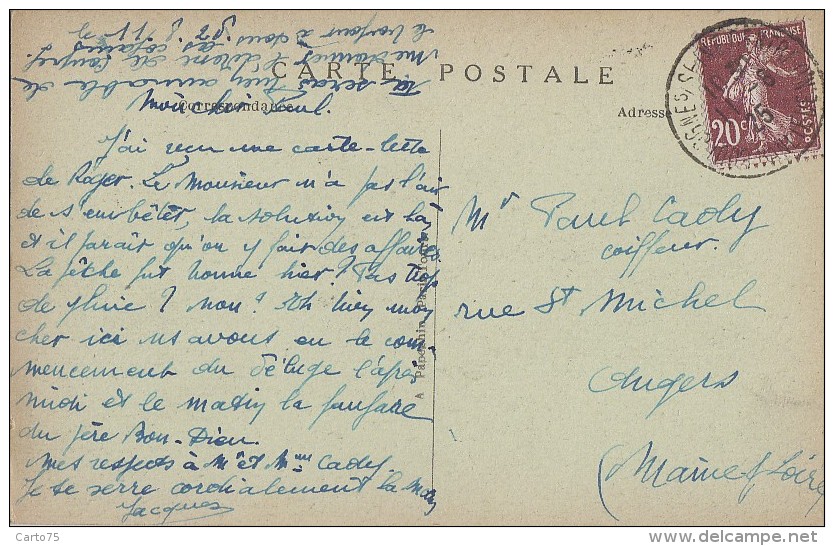 CARTE POSTALE
Correspondance
Adresse
Tu serais bien aimable de
Mon cher Paul.
J'ai reçu une carte-lettre
de Roger. Le Monsieur n'a pas l'air
de s'embêter, la solution est là,
et il paraît qu'on y fait des affaires.
La pêche fut bonne hier? Pas trop
de pluie? Non? Oh bien mon
cher ici ns avons eu le com-
mencement du déluge l'après
midi et le matin la fanfare
du père Bon-Dieu.
Mes respects à Mr et Mme Cady.
Je te serre cordialement la main
Jacques
Mr Paul Cady
coiffeur.
rue St Michel
Angers
(Maine & Loire
REPUBLIQUE FRANÇAISE
20c
POSTES
Carto75
www.delcampe.net